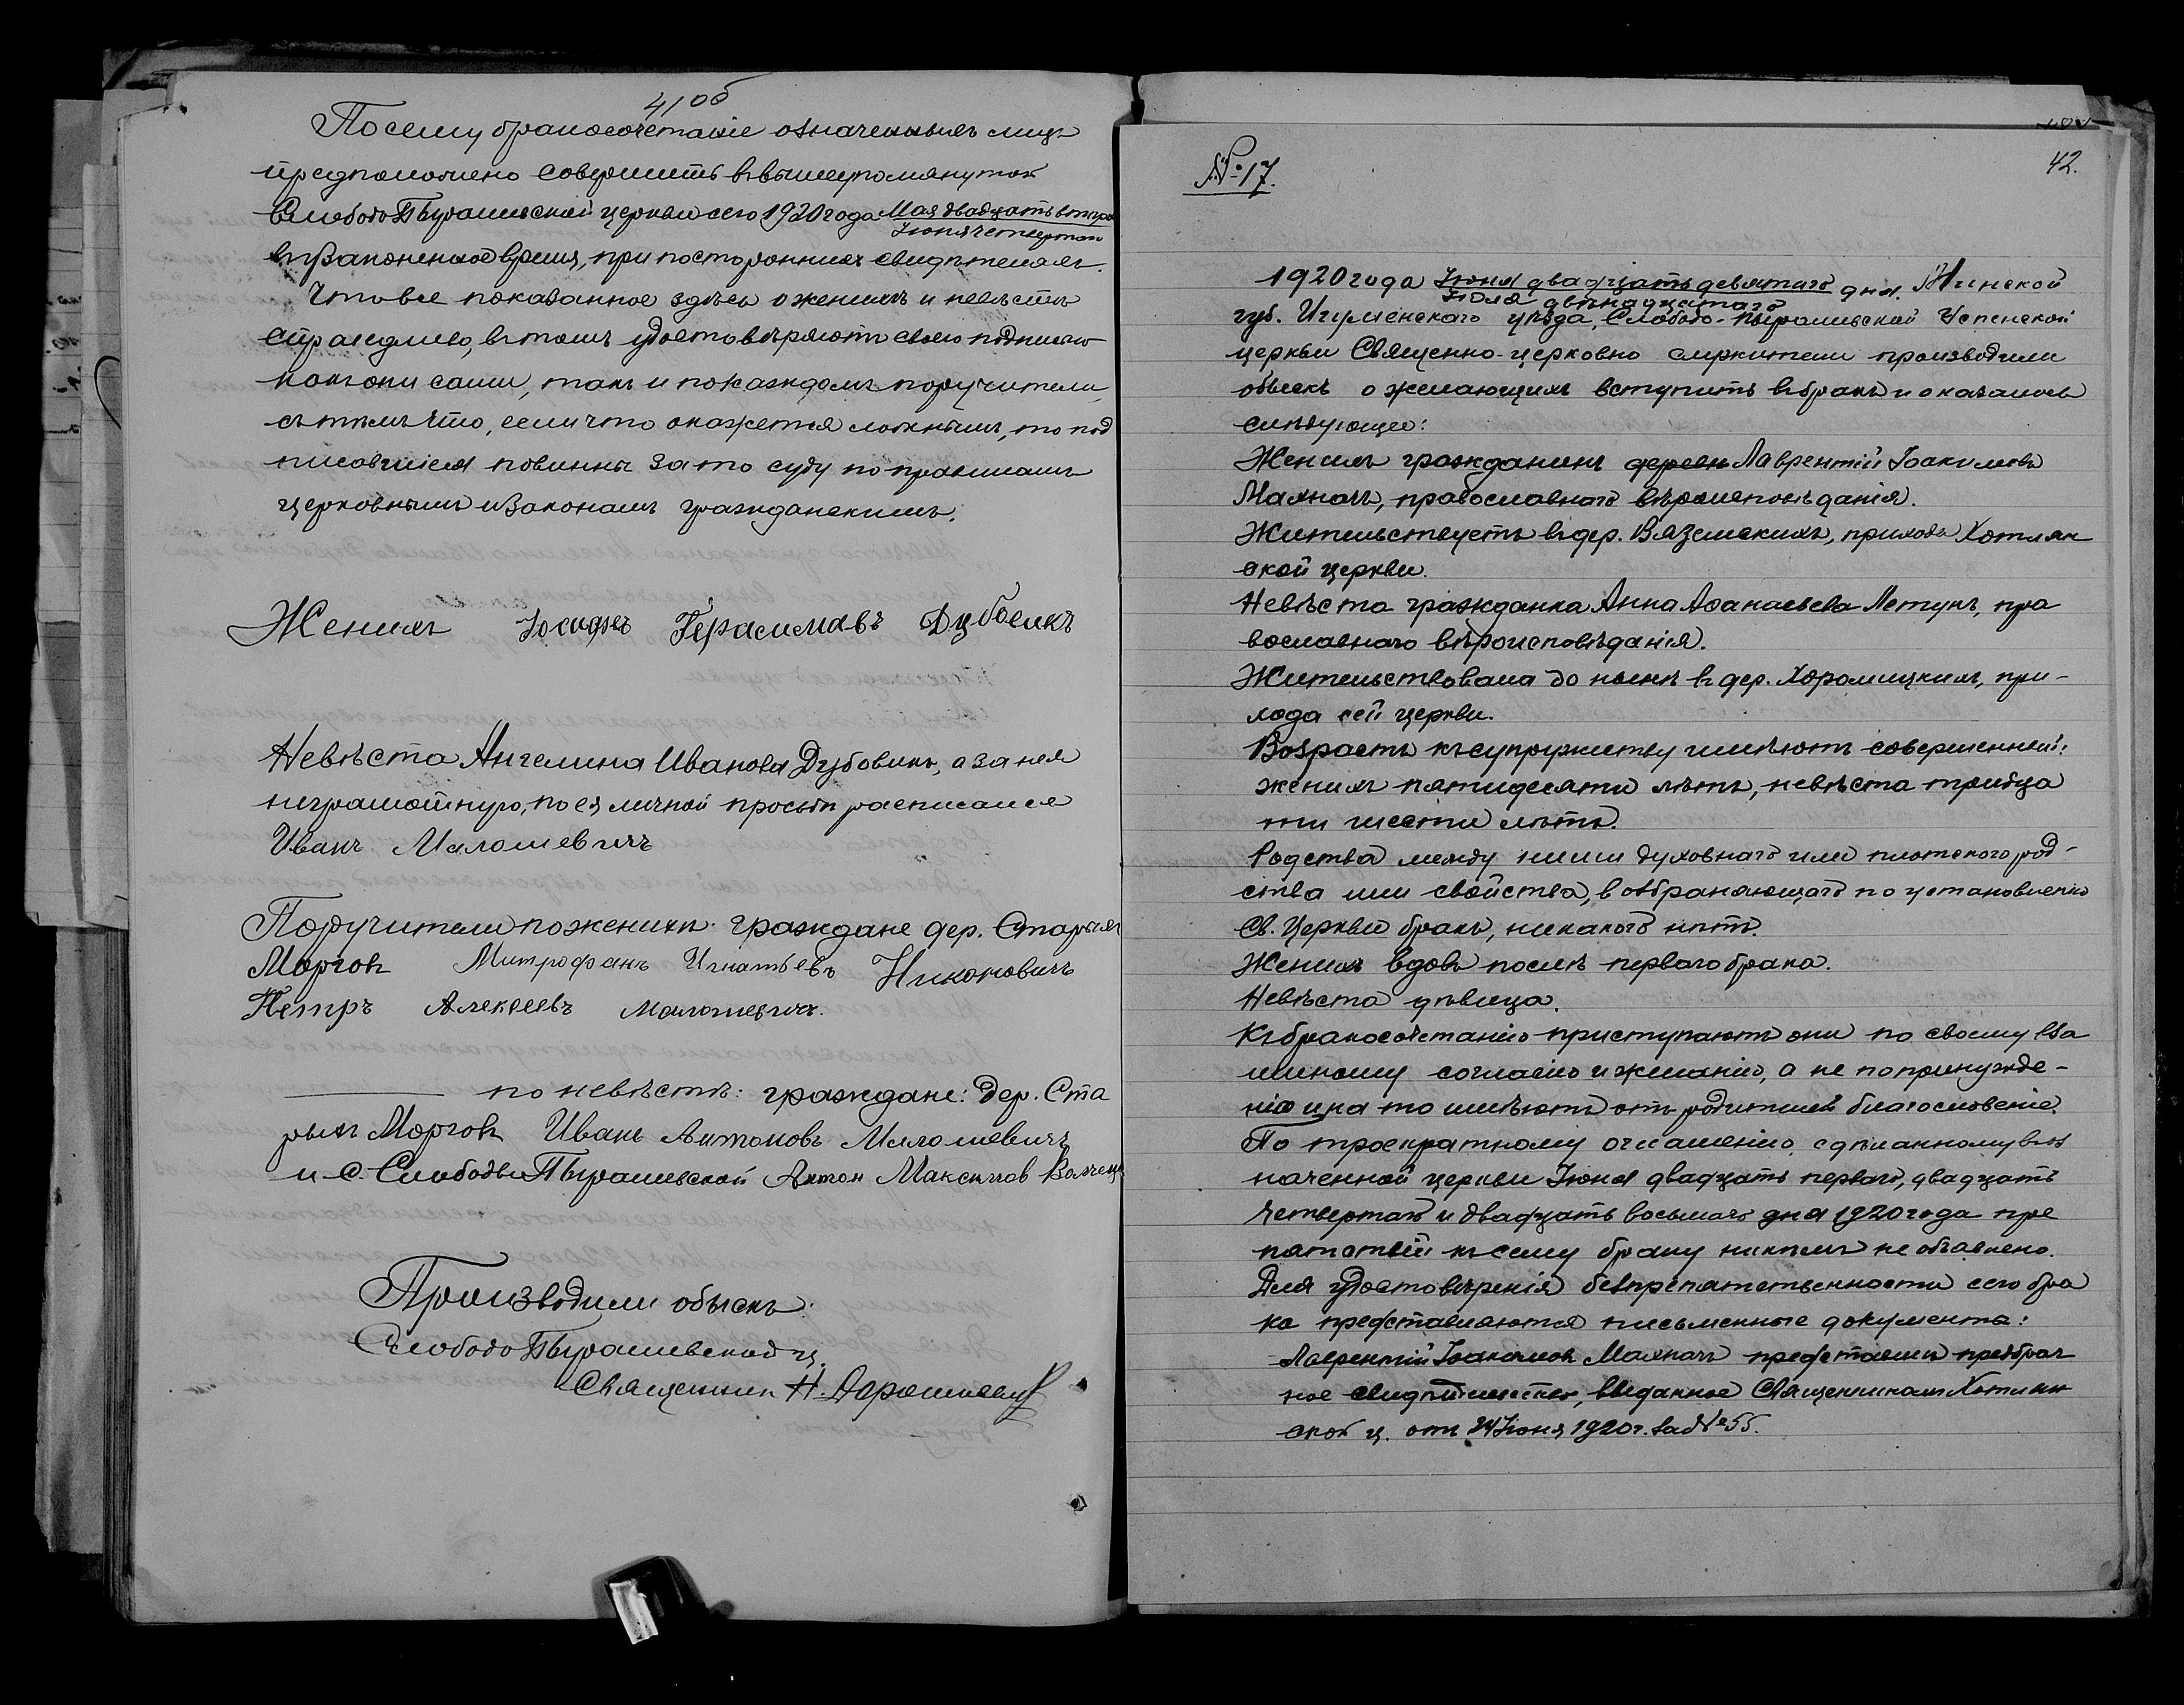 41об
Посему бракосочетаніе означенныхъ лицъ
предположено совершить въ вышеупомянутой
Слободо Пырашевской церкви сего 1920 года Мая двадцать втора
Іюня четвертаго
въ законенное время, при постороннихъ свидѣтеляхъ.
Что все показанное здѣсь о женихѣ и невѣстѣ
справедливо, въ томъ удостовѣряютъ своею подписью
какъ они сами, такъ и по каждомъ поручители,
съ тѣмъ что, если что окажется ложнымъ, то под
писавшіеся повинны за то суду по правиламъ
церковнымъ и Законамъ гражданскимъ.
Женихъ Іосифъ Герасимавъ Дубовикъ
Невѣста Ангелина Иванова Дубовикъ, а за нея
неграмотную, по ея личной просьбѣ расписался
Иванъ Малашевичъ
Поручители по женихѣ: граждане дер. Старыхъ
Моргов Митрофанъ Игнатьевъ Никоновичъ
Петръ Алексѣевъ Малашевичъ.
по невѣстѣ: граждане: дер. Ста
рыхъ Моргов Иванъ Антоновъ Малашевичъ
и с. Слободы Пырашевской Антон Максимов
Производили обыскъ:
Слободо Пырашевской ц.
Священникъ Н.
№ 17.
42.
1920 года Іюня двадцать девятаго дня. Минской
Іюля двѣнадцатаго
губ. Игуменскаго уѣзда, Слободо-Пырашевской Успенской
церкви Священно-церковно служители производили
обыскъ о желающихъ вступить въ бракъ и оказалось
слѣдующее:
Женихъ гражданинъ деревн Лаврентій Іоакимовъ
Махначъ, православнаго вѣроисповѣданія.
Жительствуетъ въ дер. Вяземскихъ, прихода Хотлян
ской церкви.
Невѣста гражданка Анна Аѳанасьева Летунъ, пра
вославнаго вѣроисповѣданія.
Жительствовала до нынѣ въ дер. Хоромицкихъ, при-
хода сей церкви.
Возрастъ къ супружеству имѣютъ совершенный:
женихъ пятидесяти лѣтъ, невѣста тридца
ти шести лѣтъ.
Родства между ними духовнаго или плотскаго род-
ства или свойства, возбраняющаго по установленію
Св. Церкви бракъ, никакого нѣтъ.
Женихъ вдовъ послѣ перваго брака.
Невѣста дѣвица.
Къ бракосочетанію приступаютъ они по своему вза
имному согласію и желанію, а не по принужде-
нію и на то имѣютъ отъ родителей благословеніе.
По троекратному оглашенію, сдѣланному въ оз
наченной церкви Іюня двадцать перваго, двадцать
четвертаго и двадцать восьмаго дня 1920 года пре
пятствій къ сему браку никѣмъ не объявлено.
Для удостовѣренія безпрепятственности сего бра
ка представляются письменные документы:
Лаврентій Іоакимовъ Махначъ представилъ предбрач
ное свидѣтельство, выданное Священникомъ Хотлян
ской ц. отъ 24 Іюня 1920 г. за № 55.